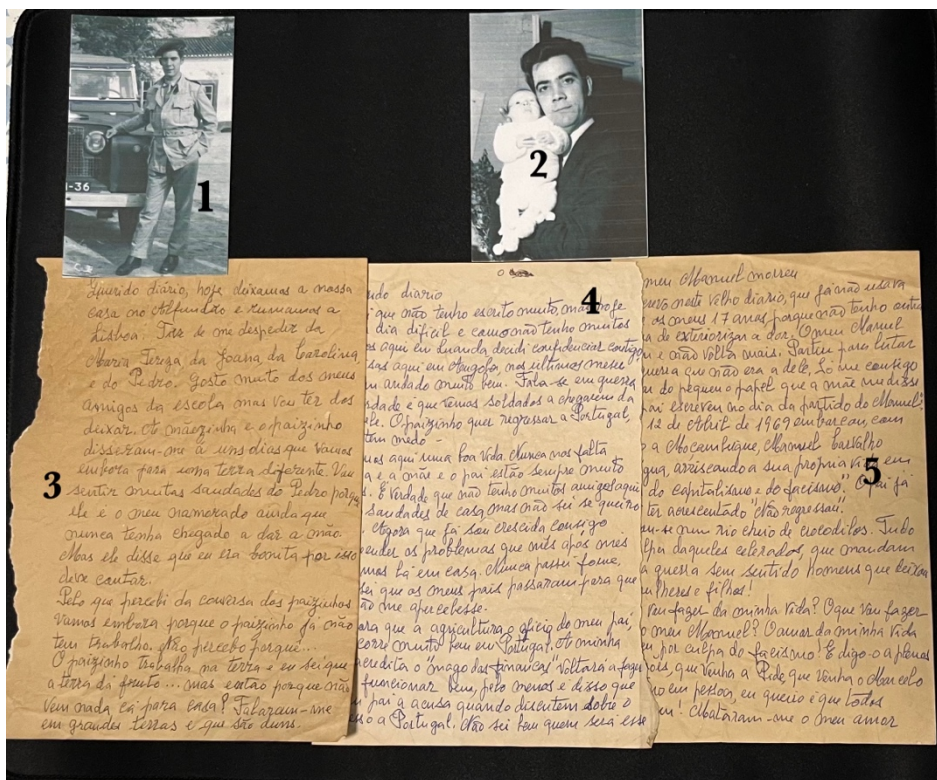 1
-36
2
Querido diário, hoje deixamos a nossa
casa no Alfundão e rumamos a
Lisboa. Tive de me despedir da
Maria Teresa da Joana da Carolina
e do Pedro. Gosto muito dos meus
amigos da escola mas vou ter dos
deixar. A mãezinha e o paizinho
disseram-me à uns dias que vamos
embora para uma terra diferente. Vou
sentir muitas saudades do Pedro porque
ele é o meu namorado ainda que
nunca tenha chegado a dar a mão.
Mas ele disse que eu era bonita por isso
deve contar.
Pelo que percebi da conversa dos paizinhos
vamos embora porque o paizinho já não
tem trabalho. Não percebo porque...
O paizinho trabalha na terra e eu sei que
a terra da fruto... mas então porque não
vem nada cá para casa? Falaram-me
em grandes terras e que são duns.
3
diário
que não tenho escrito muito, mas hoje
dia difícil e como não tenho muitos
aqui em Luanda decidi confidenciar contigo
aqui em Angola, nos ultimos meses
andado muito bem. Fala-se em guerra
e que temos soldados a chegarem da
O paizinho quer regressar a Portugal,
tem medo -
aqui uma boa vida. Nunca nos falta
e a mãe e o pai estão sempre muito
É verdade que não tenho muitos amigos aqui
saudades de casa, mas não sei se quero
Agora que já sou crescida consigo
os problemas que mês após mes
lá em casa. Nunca passei fome,
sei que os meus pais passaram para que
não me apercebesse.
que a agricultura, o oficio do meu pai,
corre muito bem em Portugal. A minha
acredita o "mago das finanças" voltará a fazer
funcionar bem, pelo menos é disso que
pai a acusa quando discutem sobre o
a Portugal. Não sei bem quem será esse
4
meu Manuel morreu
neste velho diário, que já não usava
os meus 17 anos, porque não tenho outra
de exteriorizar a dor. O meu Manuel
e não volta mais. Partiu para lutar
guerra que não era a dele. Só me consigo
do pequeno papel que a mãe me disse
pai escreveu no dia da partida do Manuel:
12 de Abril de 1969 embarcou, com
a Moçambique, Manuel Carvalho
arriscando a sua propria vida em
do capitalismo e do facismo". O pai já
ter acrescentado "Não regressou".
num rio cheio de crocodilos. Tudo
daqueles celerados, que mandam
guerra sem sentido homens que deixam
mulheres e filhos!
Vou fazer da minha vida? O que vou fazer
o meu Manuel? O amor da minha vida
por culpa do facismo! E digo-o a plenos
que venha a Pide, que venha o Marcelo
em pessoa, eu quero é que todos
Mataram-me o meu amor
5